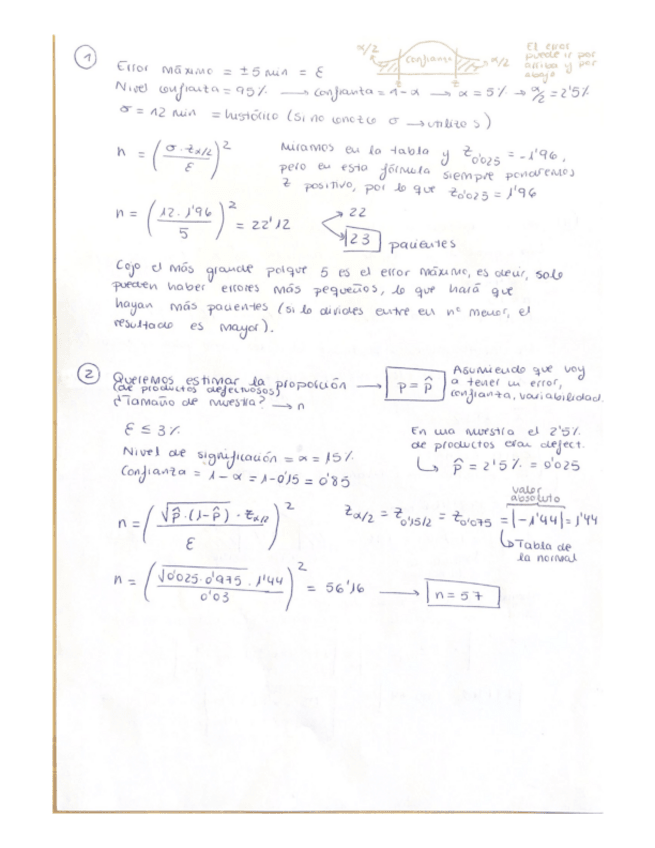 1
α/2 confianza α/2
-z z
El error
puede ir por
arriba y por
abajo
Error máximo = ±5 min = ε
Nivel confianza = 95% → confianza = 1-α → α = 5% → α/2 = 2'5%
σ = 12 min = histórico (si no conozco σ → utilizo s)
n = (σ·z_α/2 / ε)²
Miramos en la tabla y z_0'025 = -1'96,
pero en esta fórmula siempre pondremos
z positivo, por lo que z_0'025 = 1'96
n = (12·1'96 / 5)² = 22'12 → 22
→ 23 pacientes
Cojo el más grande porque 5 es el error máximo, es decir, solo
pueden haber errores más pequeños, lo que hará que
hayan más pacientes (si lo divides entre un nº menor, el
resultado es mayor).
2
Queremos estimar la proporción → p = p̂
(de productos defectuosos)
¿Tamaño de muestra? → n
Asumiendo que voy
a tener un error,
confianza, variabilidad.
ε ≤ 3%
Nivel de significación = α = 15%
Confianza = 1-α = 1-0'15 = 0'85
En una muestra el 2'5%
de productos eran defect.
↳ p̂ = 2'5% = 0'025
n = (√p̂·(1-p̂) · z_α/2 / ε)²
valor
absoluto
z_α/2 = z_0'15/2 = z_0'075 = |-1'44| = 1'44
↳ Tabla de
la normal
n = (√0'025·0'975 · 1'44 / 0'03)² = 56'16 → n = 57